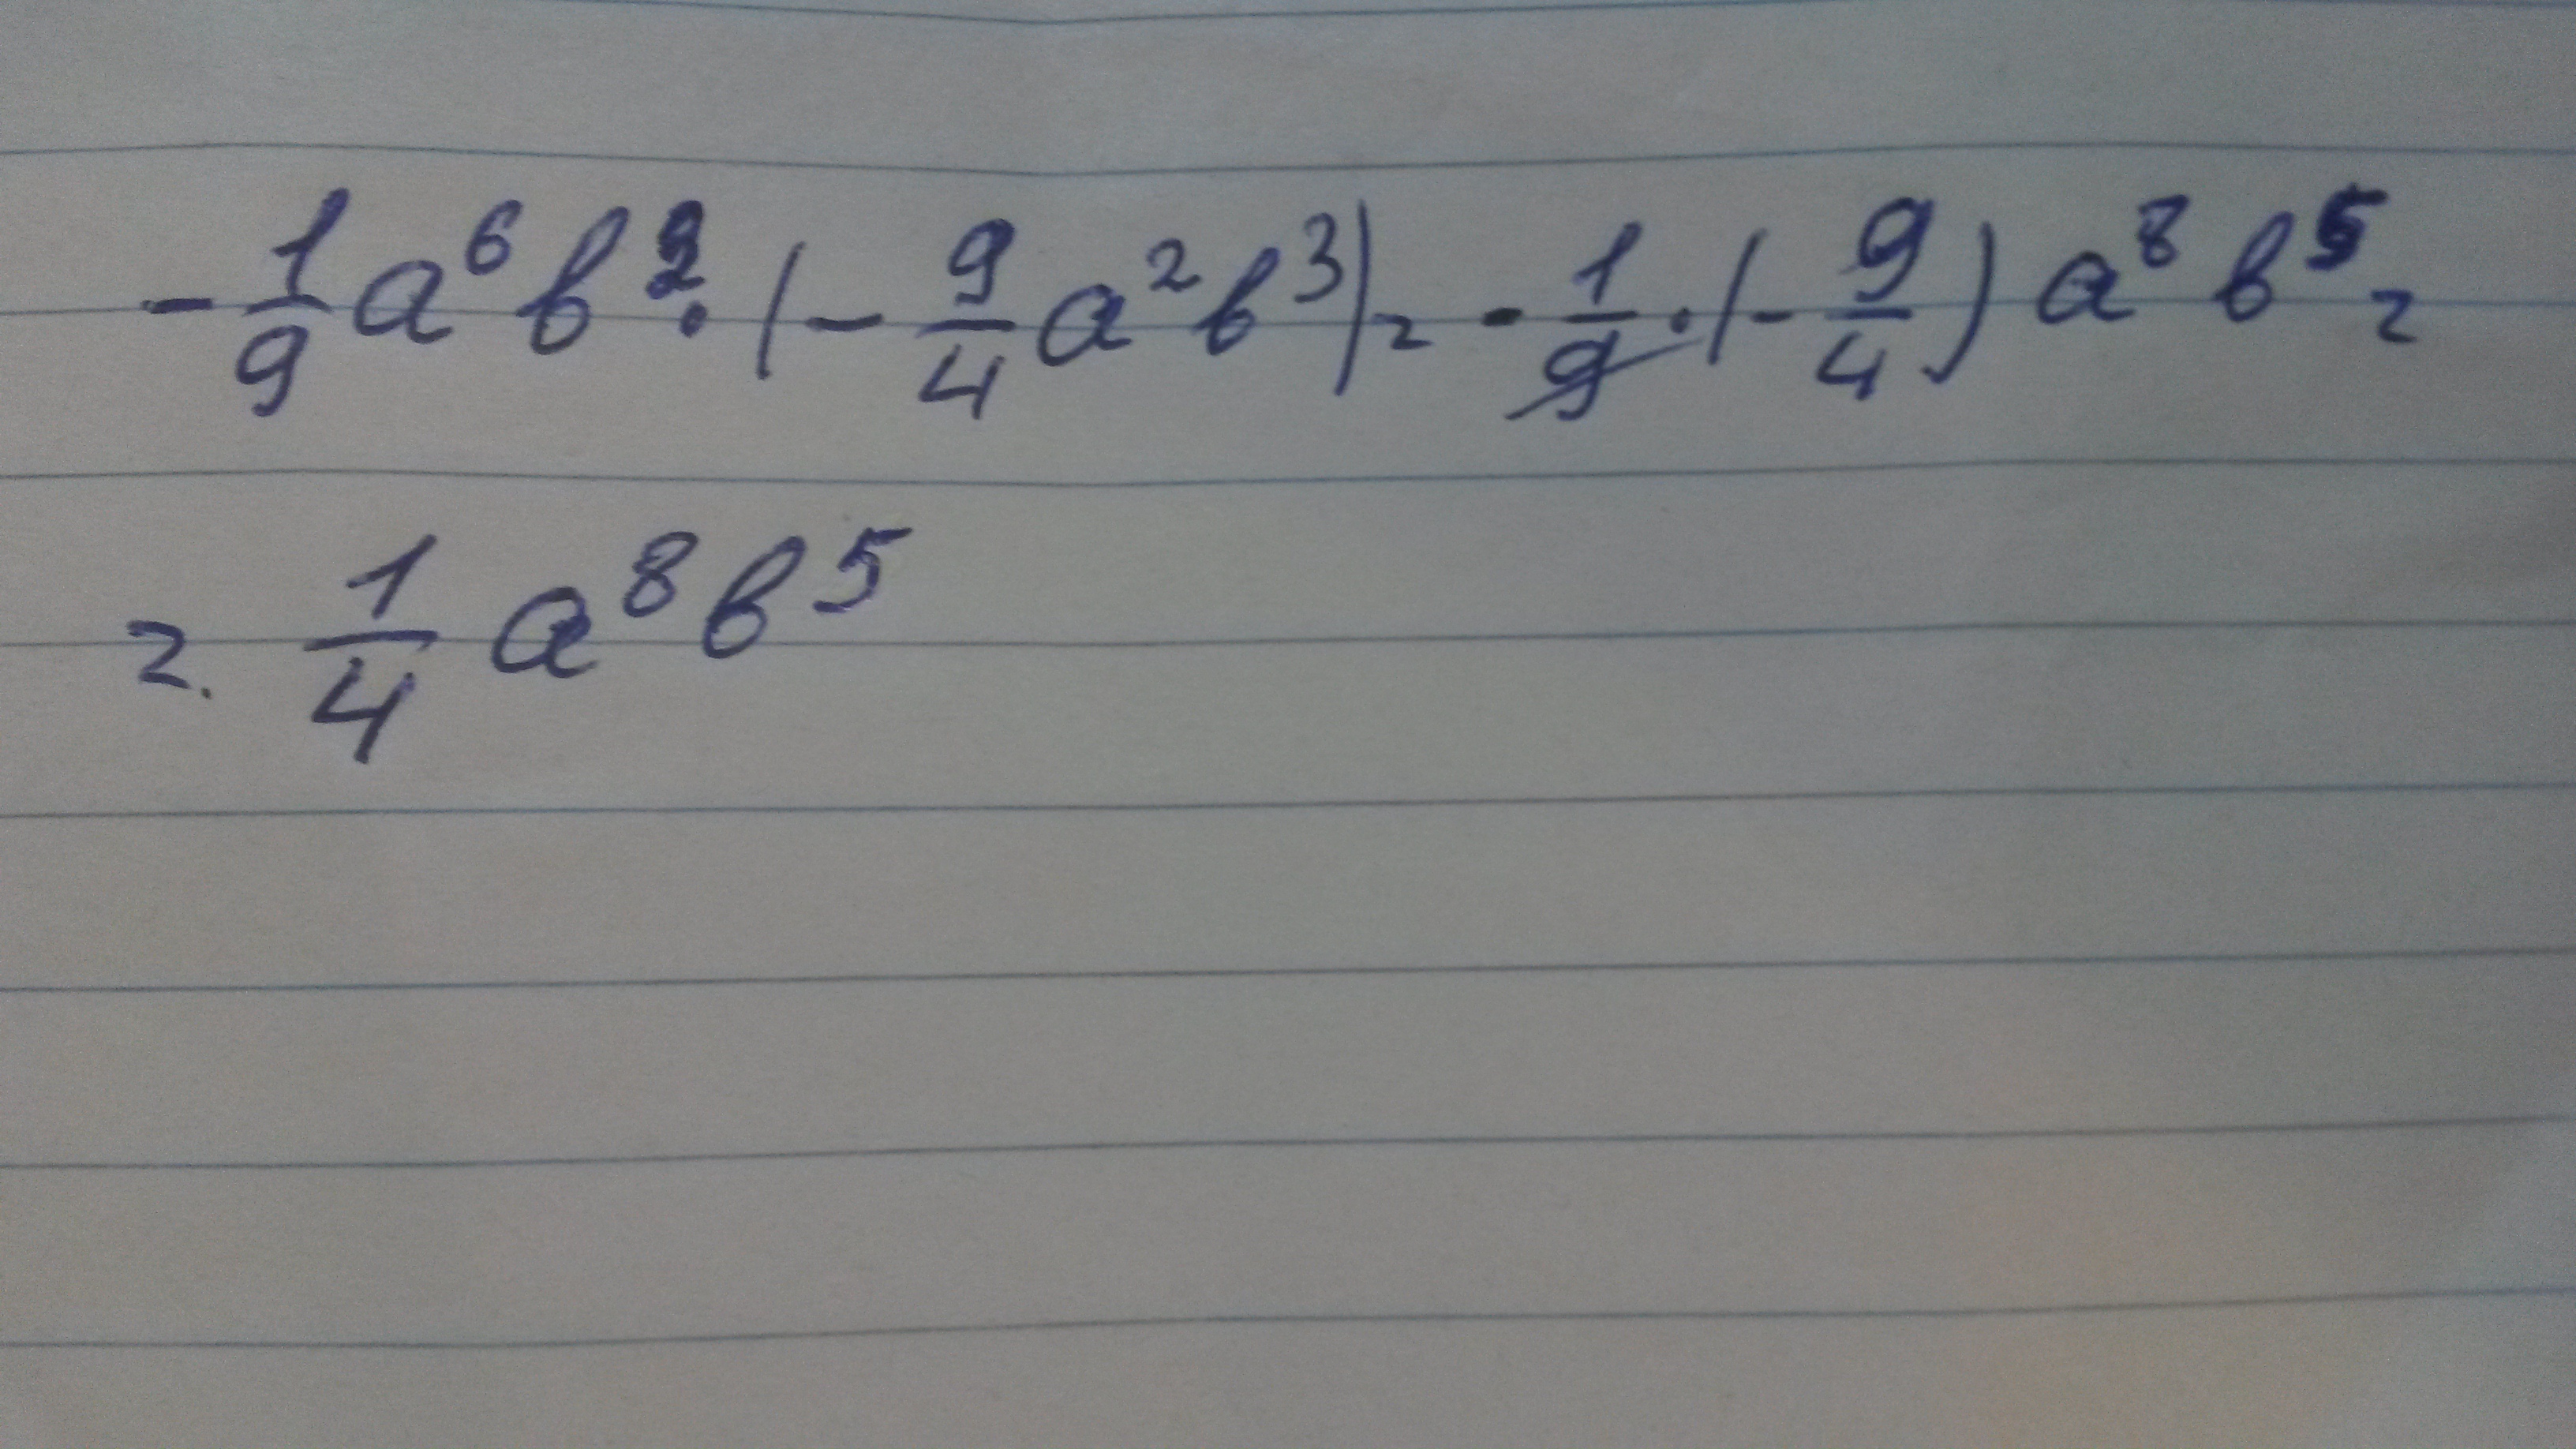 -1/9 a⁶ b² · (-9/4 a² b³) = -1/9 · (-9/4) a⁸ b⁵ =
= 1/4 a⁸ b⁵